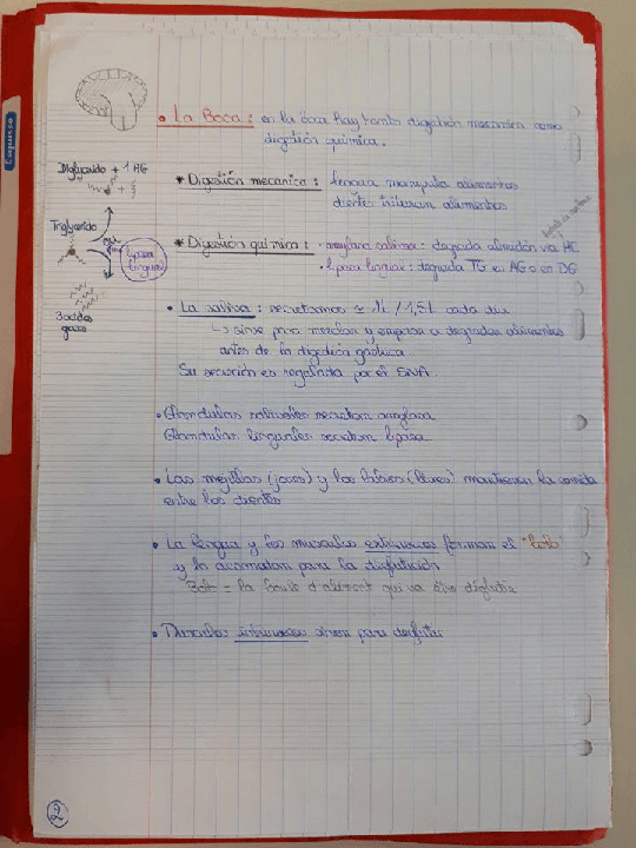 • La Boca : en la boca hay tanto digestión mecanica como
digestión química.
Diglycerido + 1 AG
Triglycerido
ou
lipasa
lingual
3 acidos
gras
* Digestión mecanica : lengua manipula alimentos
dientes trituran alimentos
* Digestión química : • amylasa salivar : degrada almidón via HC
• lipasa lingual : degrada TG en AG o en DG
• La saliva : secretamos ≃ 1L / 1,5L cada dia
↳ sirve para mezclar y empezar a degradar alimentos
antes de la digestión gástrica.
Su secreción es regulada por el SNA.
• Glandulas salivales secretan amylasa
Glandulas linguales secretan lipasa
• Las mejillas (joues) y los labios (lèvres) mantienen la comida
entre los dientes
• La lengua y los musculos extrinsecos forman el "bolo"
y lo acomodan para la deglutición
Bolo = la boule d'aliment qui va être déglutie
• Musculos intrinsecos sirven para deglutir
2